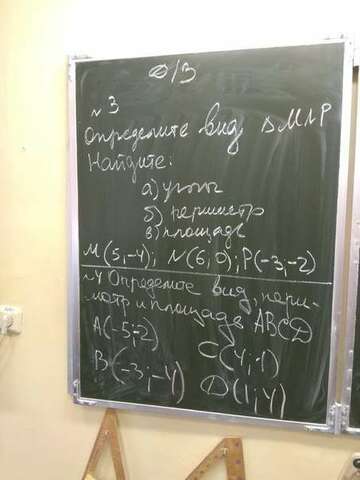 Д/З
№3
Определите вид ΔMNP
Найдите:
а) углы
б) периметр
в) площадь
M(5;-4); N(6;0); P(-3;-2)
№4 Определите вид, пери-
метр и площадь ABCD
A(-5;-2)
C(4;-1)
B(-3;-4)
D(1;4)